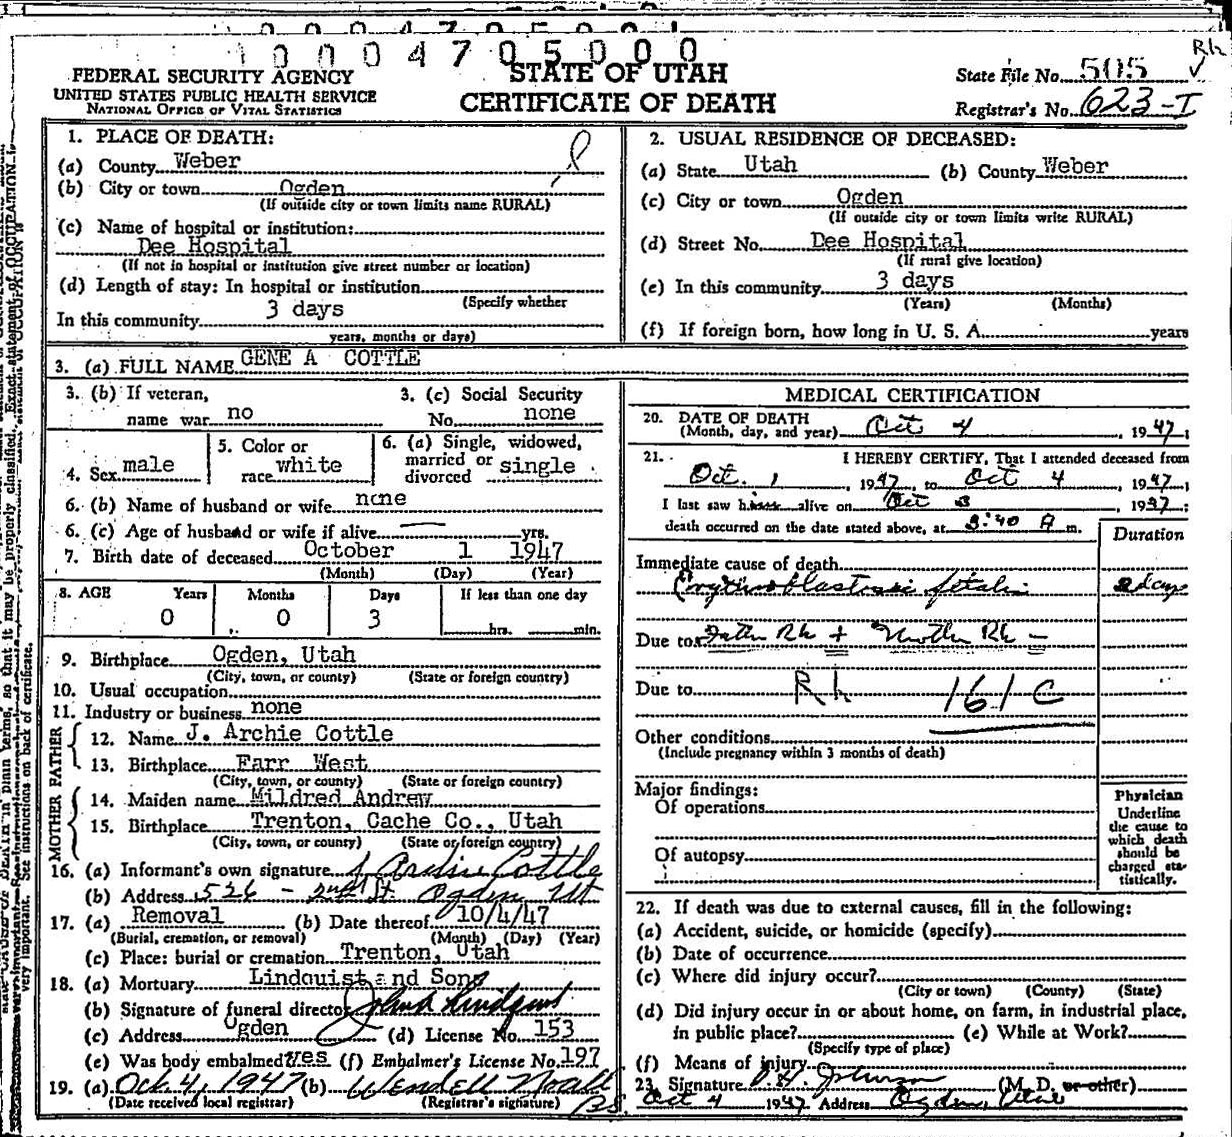 0004705000
Rh
FEDERAL SECURITY AGENCY
UNITED STATES PUBLIC HEALTH SERVICE
NATIONAL OFFICE OF VITAL STATISTICS
STATE OF UTAH
CERTIFICATE OF DEATH
State File No. 505
Registrar's No. 623-I
1. PLACE OF DEATH:
(a) County Weber
(b) City or town Ogden
(If outside city or town limits name RURAL)
(c) Name of hospital or institution:
Dee Hospital
(If not in hospital or institution give street number or location)
(d) Length of stay: In hospital or institution
(Specify whether
In this community 3 days
years, months or days)
2. USUAL RESIDENCE OF DECEASED:
(a) State Utah (b) County Weber
(c) City or town Ogden
(If outside city or town limits write RURAL)
(d) Street No. Dee Hospital
(If rural give location)
(e) In this community 3 days
(Years) (Months)
(f) If foreign born, how long in U. S. A. years
3. (a) FULL NAME GENE A COTTLE
3. (b) If veteran,
name war no
3. (c) Social Security
No. none
4. Sex male
5. Color or
race white
6. (a) Single, widowed,
married or
divorced single
6. (b) Name of husband or wife none
6. (c) Age of husband or wife if alive yrs.
7. Birth date of deceased October 1 1947
(Month) (Day) (Year)
8. AGE Years Months Days If less than one day
0 0 3 hrs. min.
9. Birthplace Ogden, Utah
(City, town, or county) (State or foreign country)
10. Usual occupation
11. Industry or business none
FATHER
12. Name J. Archie Cottle
13. Birthplace Farr West
(City, town, or county) (State or foreign country)
MOTHER
14. Maiden name Mildred Andrew
15. Birthplace Trenton, Cache Co., Utah
(City, town, or county) (State or foreign country)
16. (a) Informant's own signature J Archie Cottle
(b) Address 526 - 2nd St. Ogden Ut
17. (a) Removal (b) Date thereof 10/4/47
(Burial, cremation, or removal) (Month) (Day) (Year)
(c) Place: burial or cremation Trenton, Utah
18. (a) Mortuary Lindquist and Sons
(b) Signature of funeral director
(c) Address Ogden (d) License No. 153
(e) Was body embalmed? yes (f) Embalmer's License No. 197
19. (a) Oct 4, 1947 (b) Wendell Noall
(Date received local registrar) (Registrar's signature)
MEDICAL CERTIFICATION
20. DATE OF DEATH
(Month, day, and year) Oct 4, 1947;
21. I HEREBY CERTIFY, That I attended deceased from
Oct. 1, 1947, to Oct 4, 1947;
I last saw him alive on Oct 3, 1947;
death occurred on the date stated above, at 3:40 A m.
Duration
Immediate cause of death
Erythroblastosis fetalis 2 days
Due to Father Rh + Mother Rh -
Due to Rh 161C
Other conditions
(Include pregnancy within 3 months of death)
Major findings:
Of operations
Of autopsy
Physician
Underline
the cause to
which death
should be
charged sta-
tistically.
22. If death was due to external causes, fill in the following:
(a) Accident, suicide, or homicide (specify)
(b) Date of occurrence
(c) Where did injury occur?
(City or town) (County) (State)
(d) Did injury occur in or about home, on farm, in industrial place,
in public place? (e) While at Work?
(Specify type of place)
(f) Means of injury
23. Signature (M. D. or other)
Oct 4 1947 Address Ogden, Utah